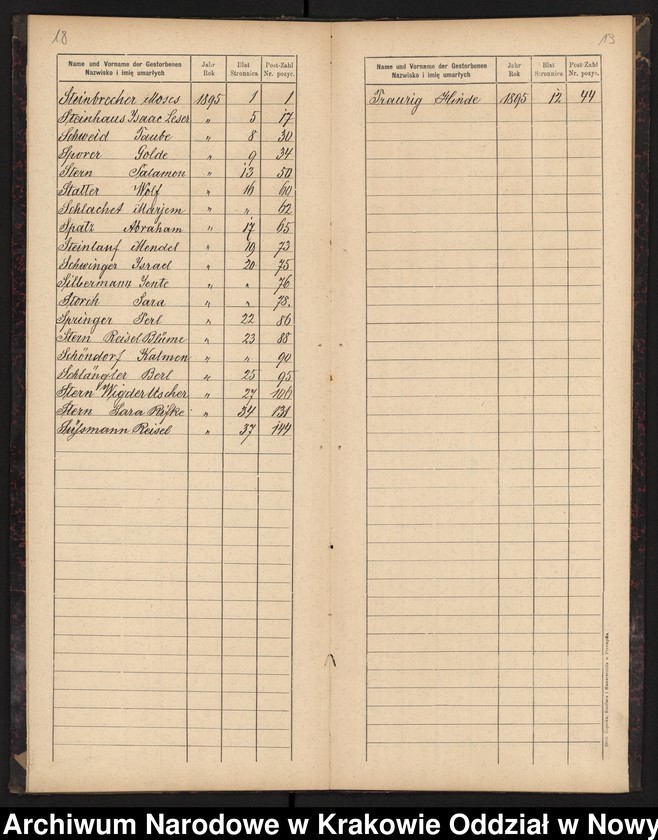 18
Name und Vorname der Gestorbenen Jahr Blat Post-Zahl
Nazwisko i imię umarłych Rok Stronnica Nr. pozyc.
Steinbrecher Moses 1895 1 1
Steinhaus Isaac Leser " 5 17
Schweid Taube " 8 30
Sporer Golde " 9 34
Stern Salamon " 13 50
Statter Wolf " 16 60
Schlachet Marjem " " 62
Spatz Abraham " 17 65
Steinlauf Mendel " 19 73
Schwinger Israel " 20 75
Silbermann Jente " " 76
Storch Sara " " 78.
Springer Perl " 22 86
Stern Reisel Blüme " 23 88
Schöndorf Kalmen " " 90
Schlängler Berl " 25 95
Stern Wigder Uscher " 27 106
Stern Sara Rifke " 34 131
Süssmann Reisel " 37 144
13
Name und Vorname der Gestorbenen Jahr Blat Post-Zahl
Nazwisko i imię umarłych Rok Stronnica Nr. pozyc.
Traurig Hinde 1895 12 44
Archiwum Narodowe w Krakowie Oddział w Nowy